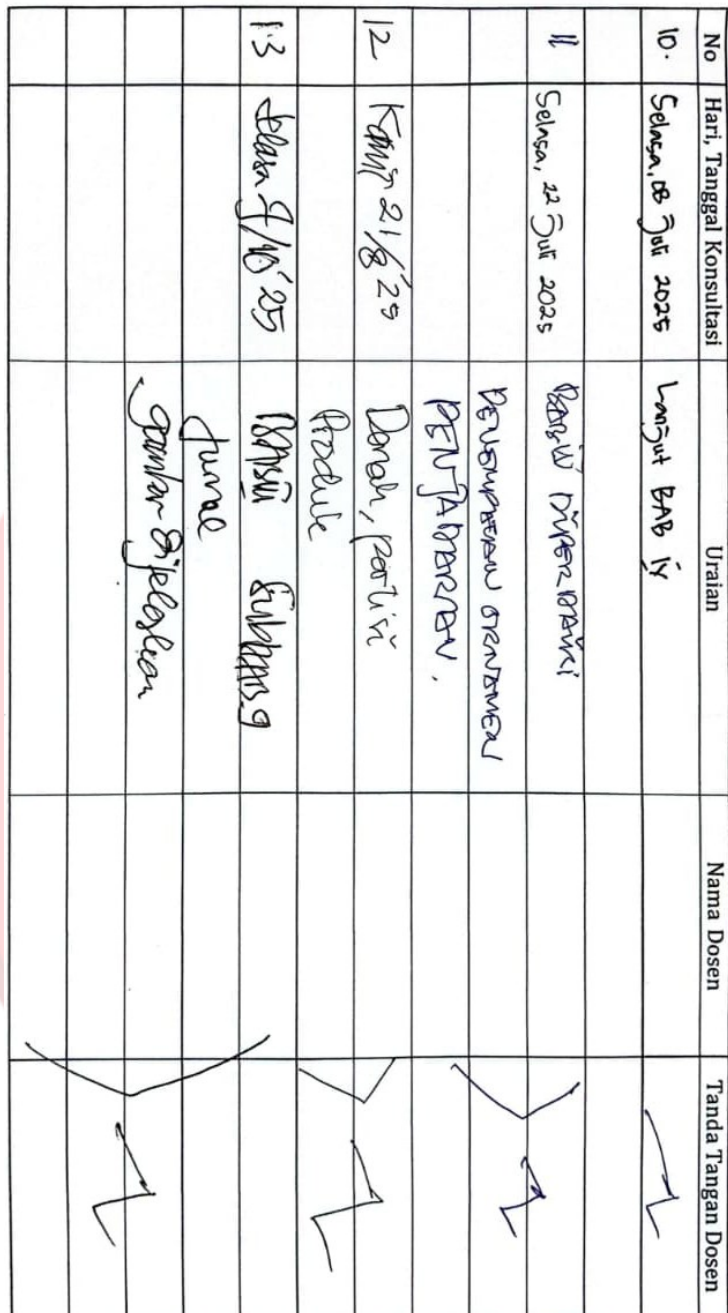 No Hari, Tanggal Konsultasi Uraian Nama Dosen Tanda Tangan Dosen
10. Selasa, 08 Juli 2025 Lanjut BAB IV
11 Selasa, 22 Juli 2025 DIPERBAIKI
PENEMPATAN ORNAMEN
12 Kamis 21/8 '25 Denah, partisi
Produk
13 Selasa /10 '25
Jurnal
gambar dijelaskan